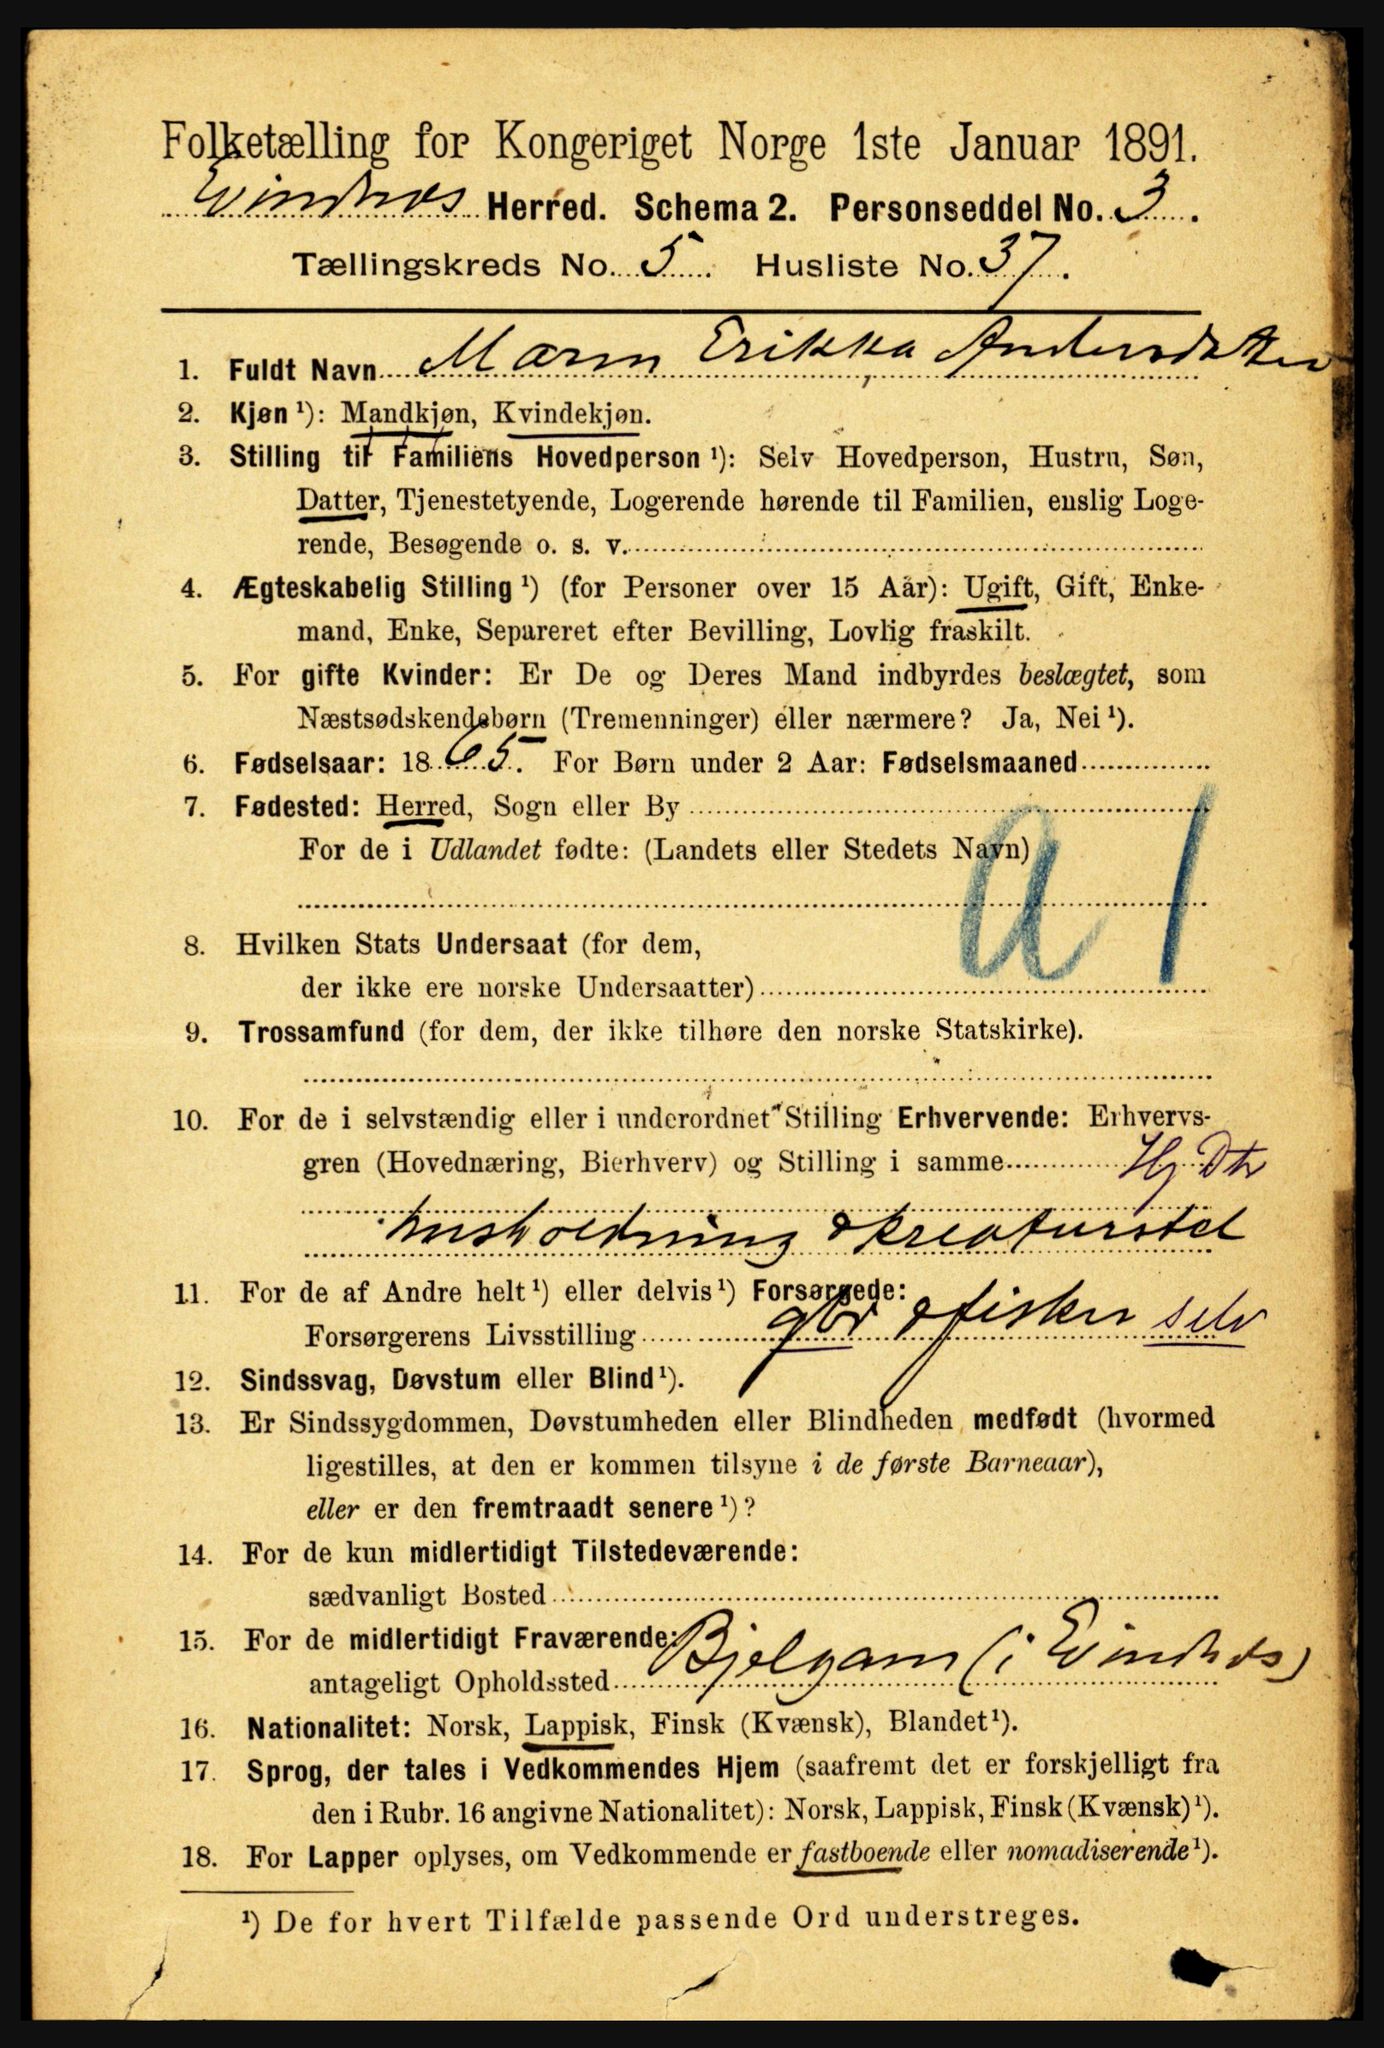 Folketælling for Kongeriget Norge 1ste Januar 1891.
Evindnæs Herred. Schema 2. Personseddel No. 3.
Tællingskreds No. 5. Husliste No. 37.
1. Fuldt Navn Maren Erikka Andersdatter
2. Kjøn ¹): Mandkjøn, Kvindekjøn.
3. Stilling til Familiens Hovedperson ¹): Selv Hovedperson, Hustru, Søn,
Datter, Tjenestetyende, Logerende hørende til Familien, enslig Loge-
rende, Besøgende o. s. v.
4. Ægteskabelig Stilling ¹) (for Personer over 15 Aar): Ugift, Gift, Enke-
mand, Enke, Separeret efter Bevilling, Lovlig fraskilt.
5. For gifte Kvinder: Er De og Deres Mand indbyrdes beslægtet, som
Næstsødskendebørn (Tremenninger) eller nærmere? Ja, Nei ¹).
6. Fødselsaar: 1865. For Børn under 2 Aar: Fødselsmaaned
7. Fødested: Herred, Sogn eller By
For de i Udlandet fødte: (Landets eller Stedets Navn)
a 1
8. Hvilken Stats Undersaat (for dem,
der ikke ere norske Undersaatter)
9. Trossamfund (for dem, der ikke tilhøre den norske Statskirke).
10. For de i selvstændig eller i underordnet Stilling Erhvervende: Erhvervs-
gren (Hovednæring, Bierhverv) og Stilling i samme Hj. Dtr
husholdning & kreaturstel
11. For de af Andre helt ¹) eller delvis ¹) Forsørgede:
Forsørgerens Livsstilling gbr & fisker selv
12. Sindssvag, Døvstum eller Blind ¹).
13. Er Sindssygdommen, Døvstumheden eller Blindheden medfødt (hvormed
ligestilles, at den er kommen tilsyne i de første Barneaar),
eller er den fremtraadt senere ¹)?
14. For de kun midlertidigt Tilstedeværende:
sædvanligt Bosted
15. For de midlertidigt Fraværende:
antageligt Opholdssted Bjelgam (i Evindnæs)
16. Nationalitet: Norsk, Lappisk, Finsk (Kvænsk), Blandet ¹).
17. Sprog, der tales i Vedkommendes Hjem (saafremt det er forskjelligt fra
den i Rubr. 16 angivne Nationalitet): Norsk, Lappisk, Finsk (Kvænsk) ¹).
18. For Lapper oplyses, om Vedkommende er fastboende eller nomadiserende ¹).
¹) De for hvert Tilfælde passende Ord understreges.